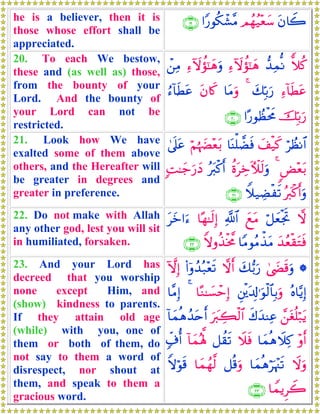 he is a believer, then it is
those whose effort shall be
appreciated.
كَانَ سَعۡيُهُم مَّشۡكُورٗا ١٩
20. To each We bestow,
these and (as well as) those,
from the bounty of your
Lord. And the bounty of
your Lord can not be
restricted.
كُلّٗا نُّمِدُّ هَٰٓؤُلَآءِ وَهَٰٓؤُلَآءِ مِنۡ
عَطَآءِ رَبِّكَۚ وَمَا كَانَ عَطَآءُ
رَبِّكَ مَحۡظُورًا ٢٠
21. Look how We have
exalted some of them above
others, and the Hereafter will
be greater in degrees and
greater in preference.
ٱنظُرۡ كَيۡفَ فَضَّلۡنَا بَعۡضَهُمۡ عَلَىٰ
بَعۡضٖۚ وَلَلۡأٓخِرَةُ أَكۡبَرُ دَرَجَٰتٖ
وَأَكۡبَرُ تَفۡضِيلٗا ٢١
22. Do not make with Allah
any other god, lest you will sit
in humiliated, forsaken.
لَّا تَجۡعَلۡ مَعَ ٱللَّهِ إِلَٰهًا ءَاخَرَ
فَتَقۡعُدَ مَذۡمُومٗا مَّخۡذُولٗا ٢٢
23. And your Lord has
decreed that you worship
none except Him, and
(show) kindness to parents.
If they attain old age
(while) with you, one of
them or both of them, do
not say to them a word of
disrespect, nor shout at
them, and speak to them a
gracious word.
۞ وَقَضَىٰ رَبُّكَ أَلَّا تَعۡبُدُوٓاْ إِلَّآ
إِيَّاهُ وَبِٱلۡوَٰلِدَيۡنِ إِحۡسَٰنًاۚ إِمَّا
يَبۡلُغَنَّ عِندَكَ ٱلۡكِبَرَ أَحَدُهُمَآ
أَوۡ كِلَاهُمَا فَلَا تَقُل لَّهُمَآ أُفّٖ
وَلَا تَنۡهَرۡهُمَا وَقُل لَّهُمَا قَوۡلٗا
كَرِيمٗا ٢٣